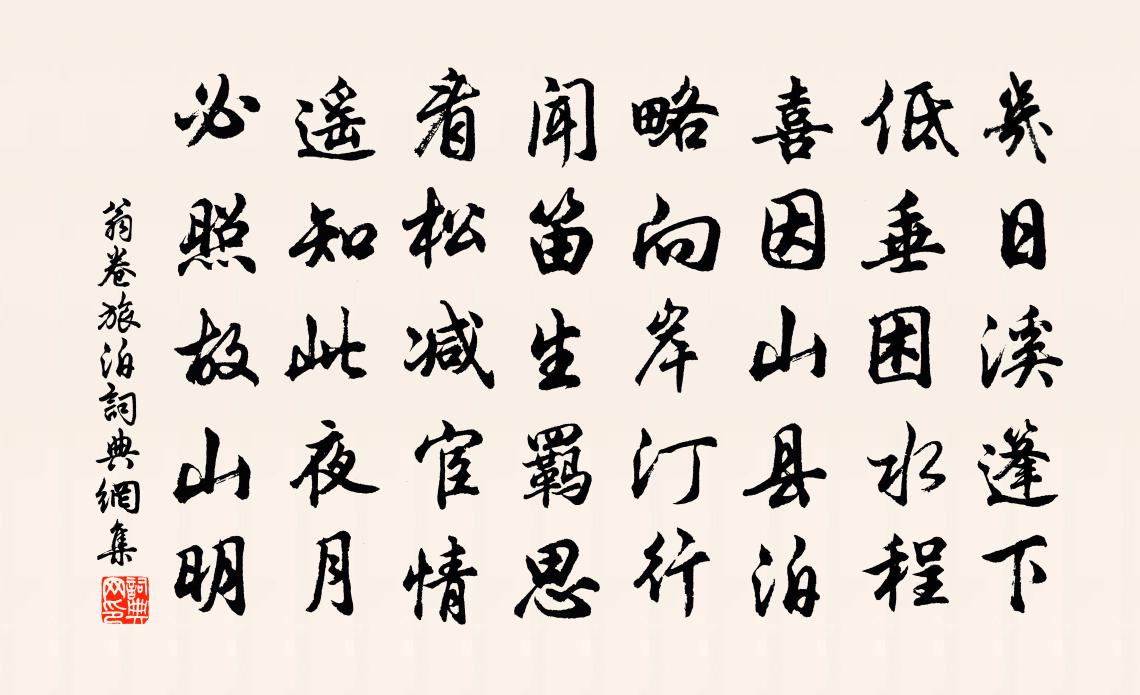 幾日溪蓬下
低垂困水程
喜因山县泊
略向岸汀行
闻笛生羁思
看松减宦情
遥知此夜月
必照故山明
翁卷旅泊詞典網集
詞典网印